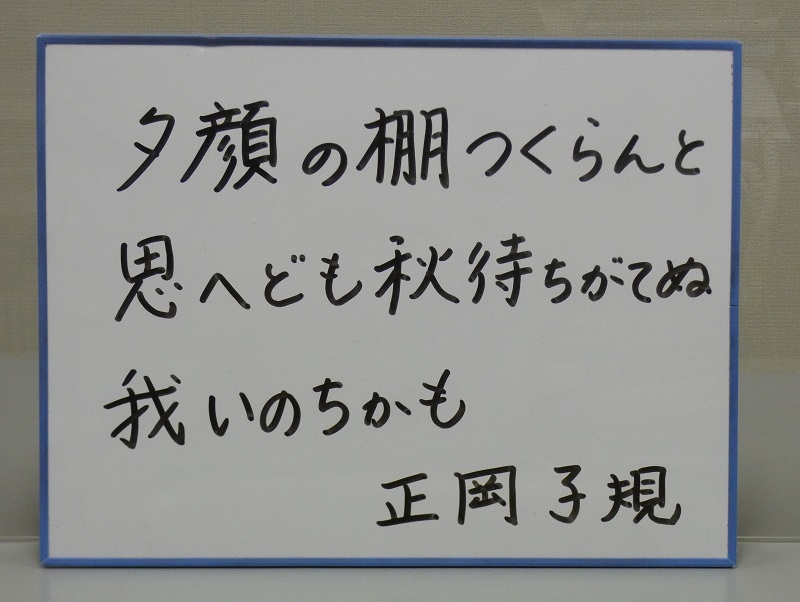 夕顔の棚つくらんと
思へども秋待ちがてぬ
我いのちかも
正岡子規